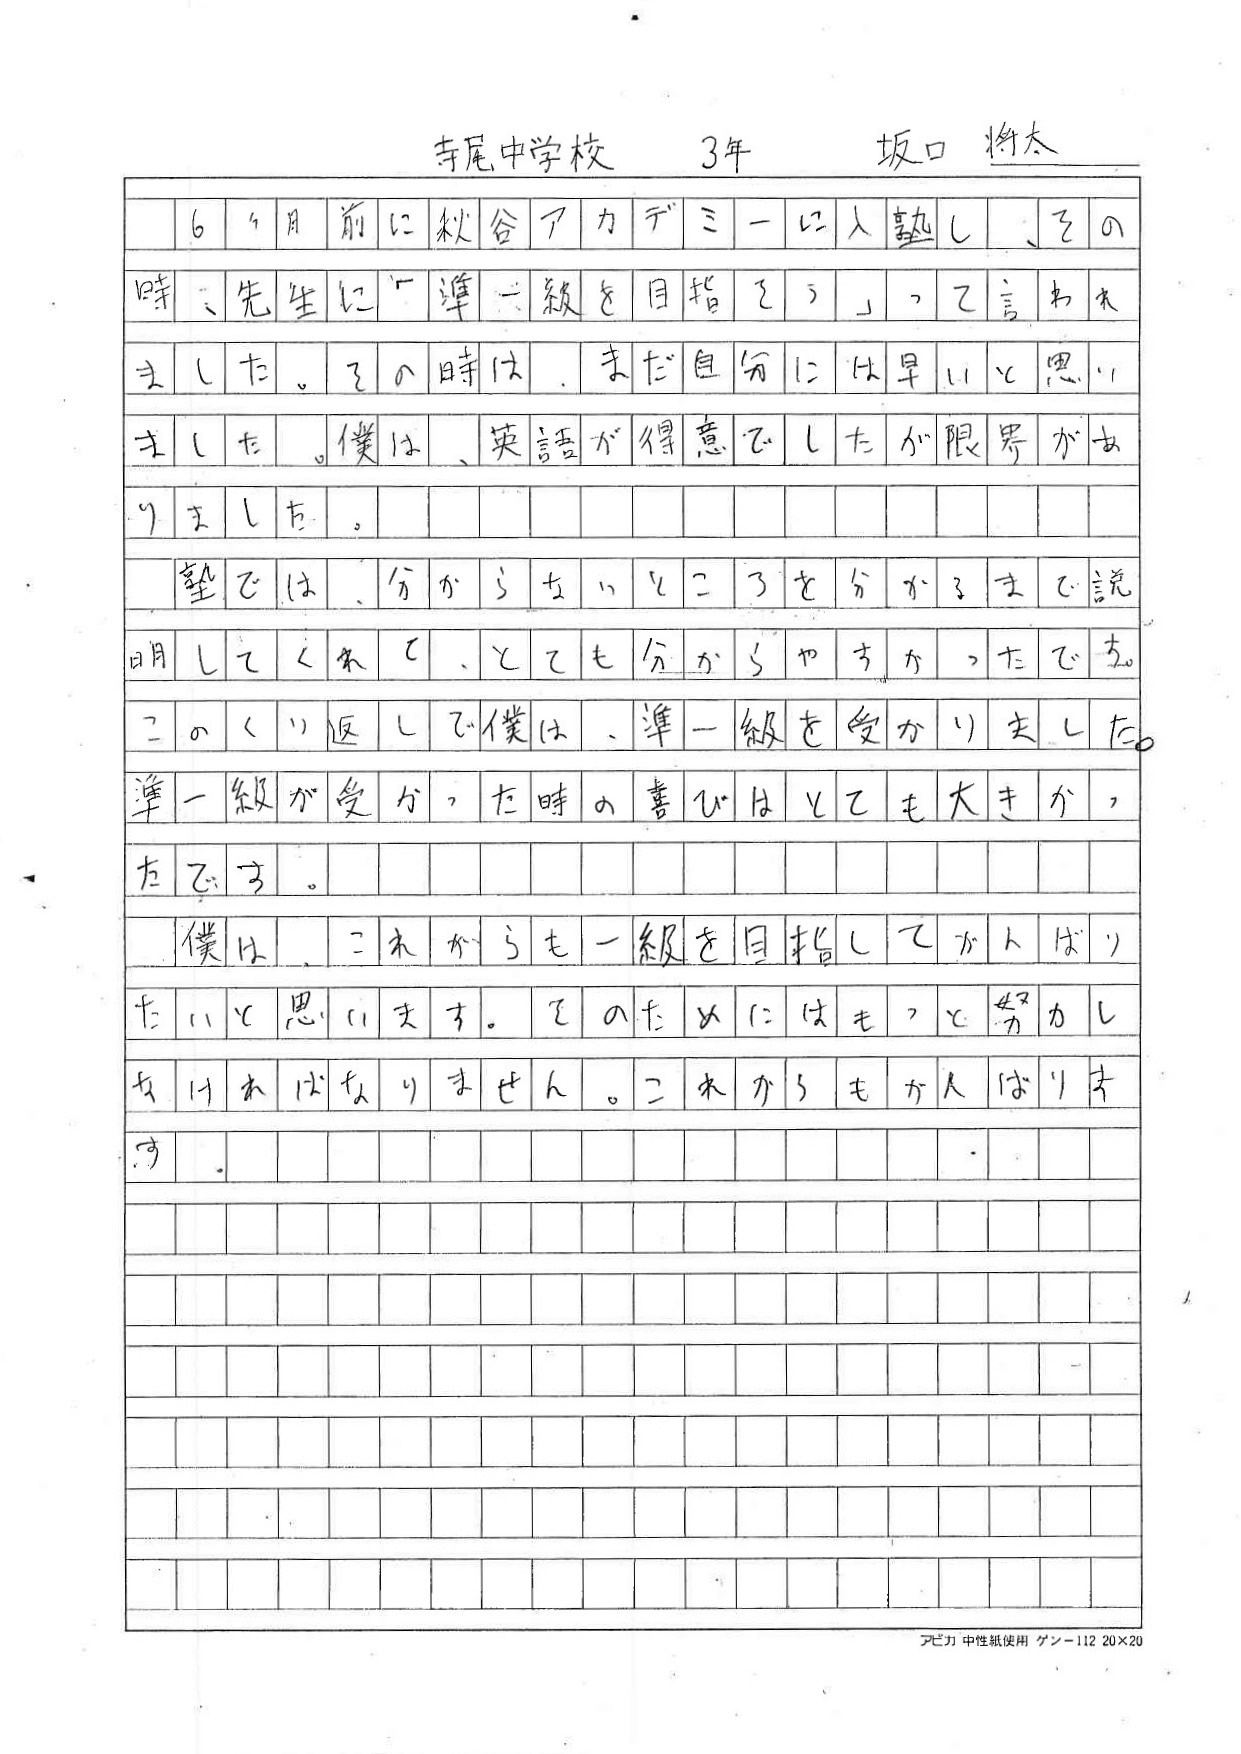 寺尾中学校　3年　坂口 将太
　6ヶ月前に秋谷アカデミーに入塾し、その
時、先生に「準一級を目指そう」って言われ
ました。その時は、まだ自分には早いと思い
ました。僕は、英語が得意でしたが限界があ
りました。
　塾では、分からないところを分かるまで説
明してくれて、とても分からやすかったです。
このくり返しで僕は、準一級を受かりました。
準一級が受かった時の喜びはとても大きかっ
たです。
　僕は、これからも一級を目指してがんばり
たいと思います。そのためにはもっと努力し
なければなりません。これからもがんばりま
す。
アピカ 中性紙使用 ゲンー112 20×20